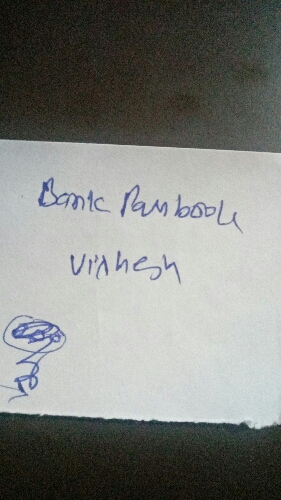 Bank Passbook
Vighesh